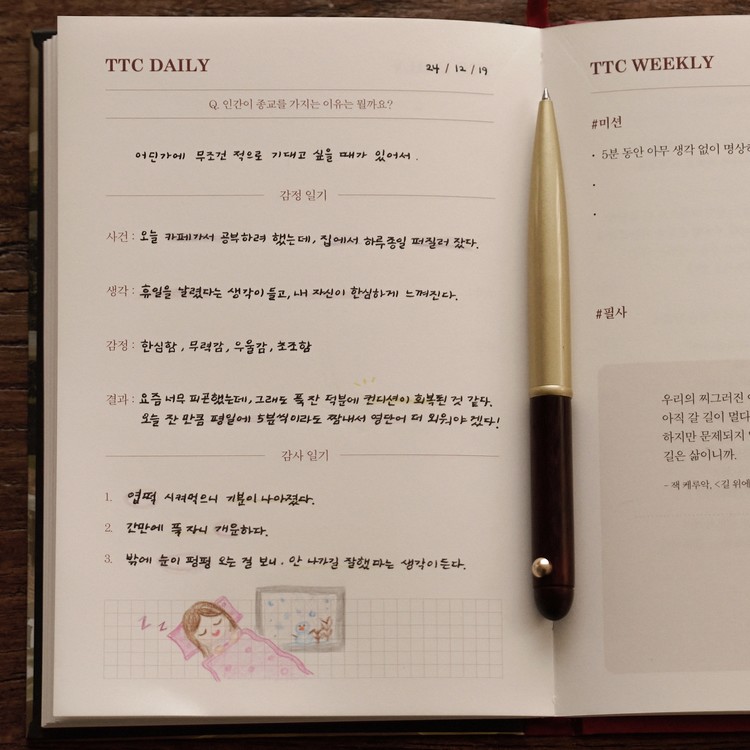 TTC DAILY
24 / 12 / 19
Q. 인간이 종교를 가지는 이유는 뭘까요?
어딘가에 무조건 적으로 기대고 싶을 때가 있어서.
감정 일기
사건 : 오늘 카페가서 공부하려 했는데, 집에서 하루종일 퍼질러 잤다.
생각 : 휴일을 날렸다는 생각이 들고, 내 자신이 한심하게 느껴진다.
감정 : 한심함, 무력감, 우울감, 초조함
결과 : 요즘 너무 피곤했는데, 그래도 푹 잔 덕분에 컨디션이 회복된 것 같다.
오늘 잔 만큼 평일에 5분씩이라도 짬내서 영단어 더 외워야겠다!
감사 일기
1. 엽떡 시켜먹으니 기분이 나아졌다.
2. 간만에 푹 자니 개운하다.
3. 밖에 눈이 펑펑 오는 걸 보니, 안 나가길 잘했다는 생각이 든다.
z z
TTC WEEKLY
#미션
· 5분 동안 아무 생각 없이 명상
#필사
우리의 찌그러진
아직 갈 길이 멀다
하지만 문제되지
길은 삶이니까.
- 잭 케루악, <길 위에